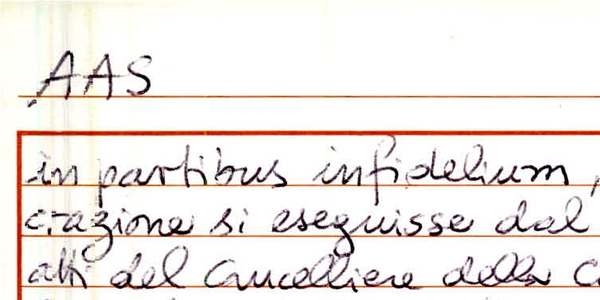 AAS
in partibus infidelium,
crazione si eseguisse dal
atti del Cancelliere della